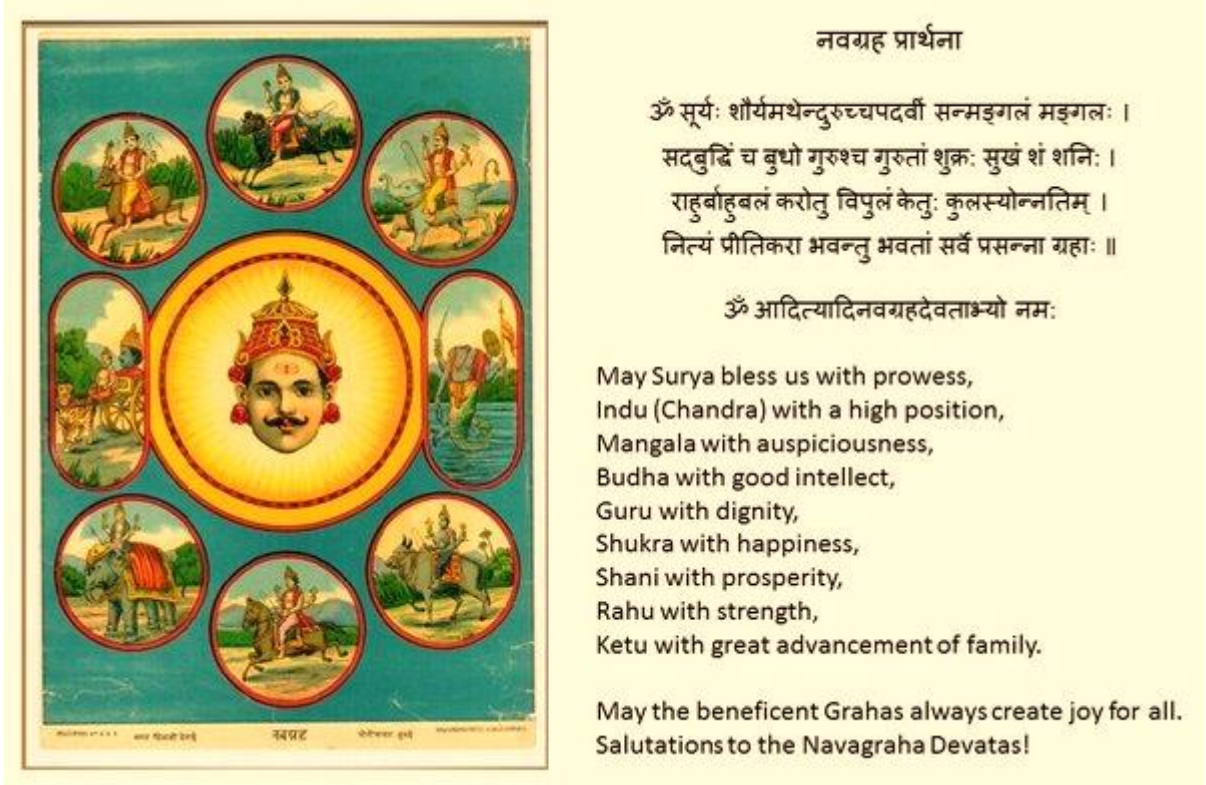 नवग्रह प्रार्थना
ॐ सूर्यः शौर्यमथेन्दुरुच्चपदवीं सन्मङ्गलं मङ्गलः ।
सद्बुद्धिं च बुधो गुरुश्च गुरुतां शुक्र: सुखं शं शनि: ।
राहुर्बाहुबलं करोतु विपुलं केतु: कुलस्योन्नतिम् ।
नित्यं प्रीतिकरा भवन्तु भवतां सर्वे प्रसन्ना ग्रहाः ॥
ॐ आदित्यादिनवग्रहदेवताभ्यो नम:
May Surya bless us with prowess,
Indu (Chandra) with a high position,
Mangala with auspiciousness,
Budha with good intellect,
Guru with dignity,
Shukra with happiness,
Shani with prosperity,
Rahu with strength,
Ketu with great advancement of family.
May the beneficent Grahas always create joy for all.
Salutations to the Navagraha Devatas!